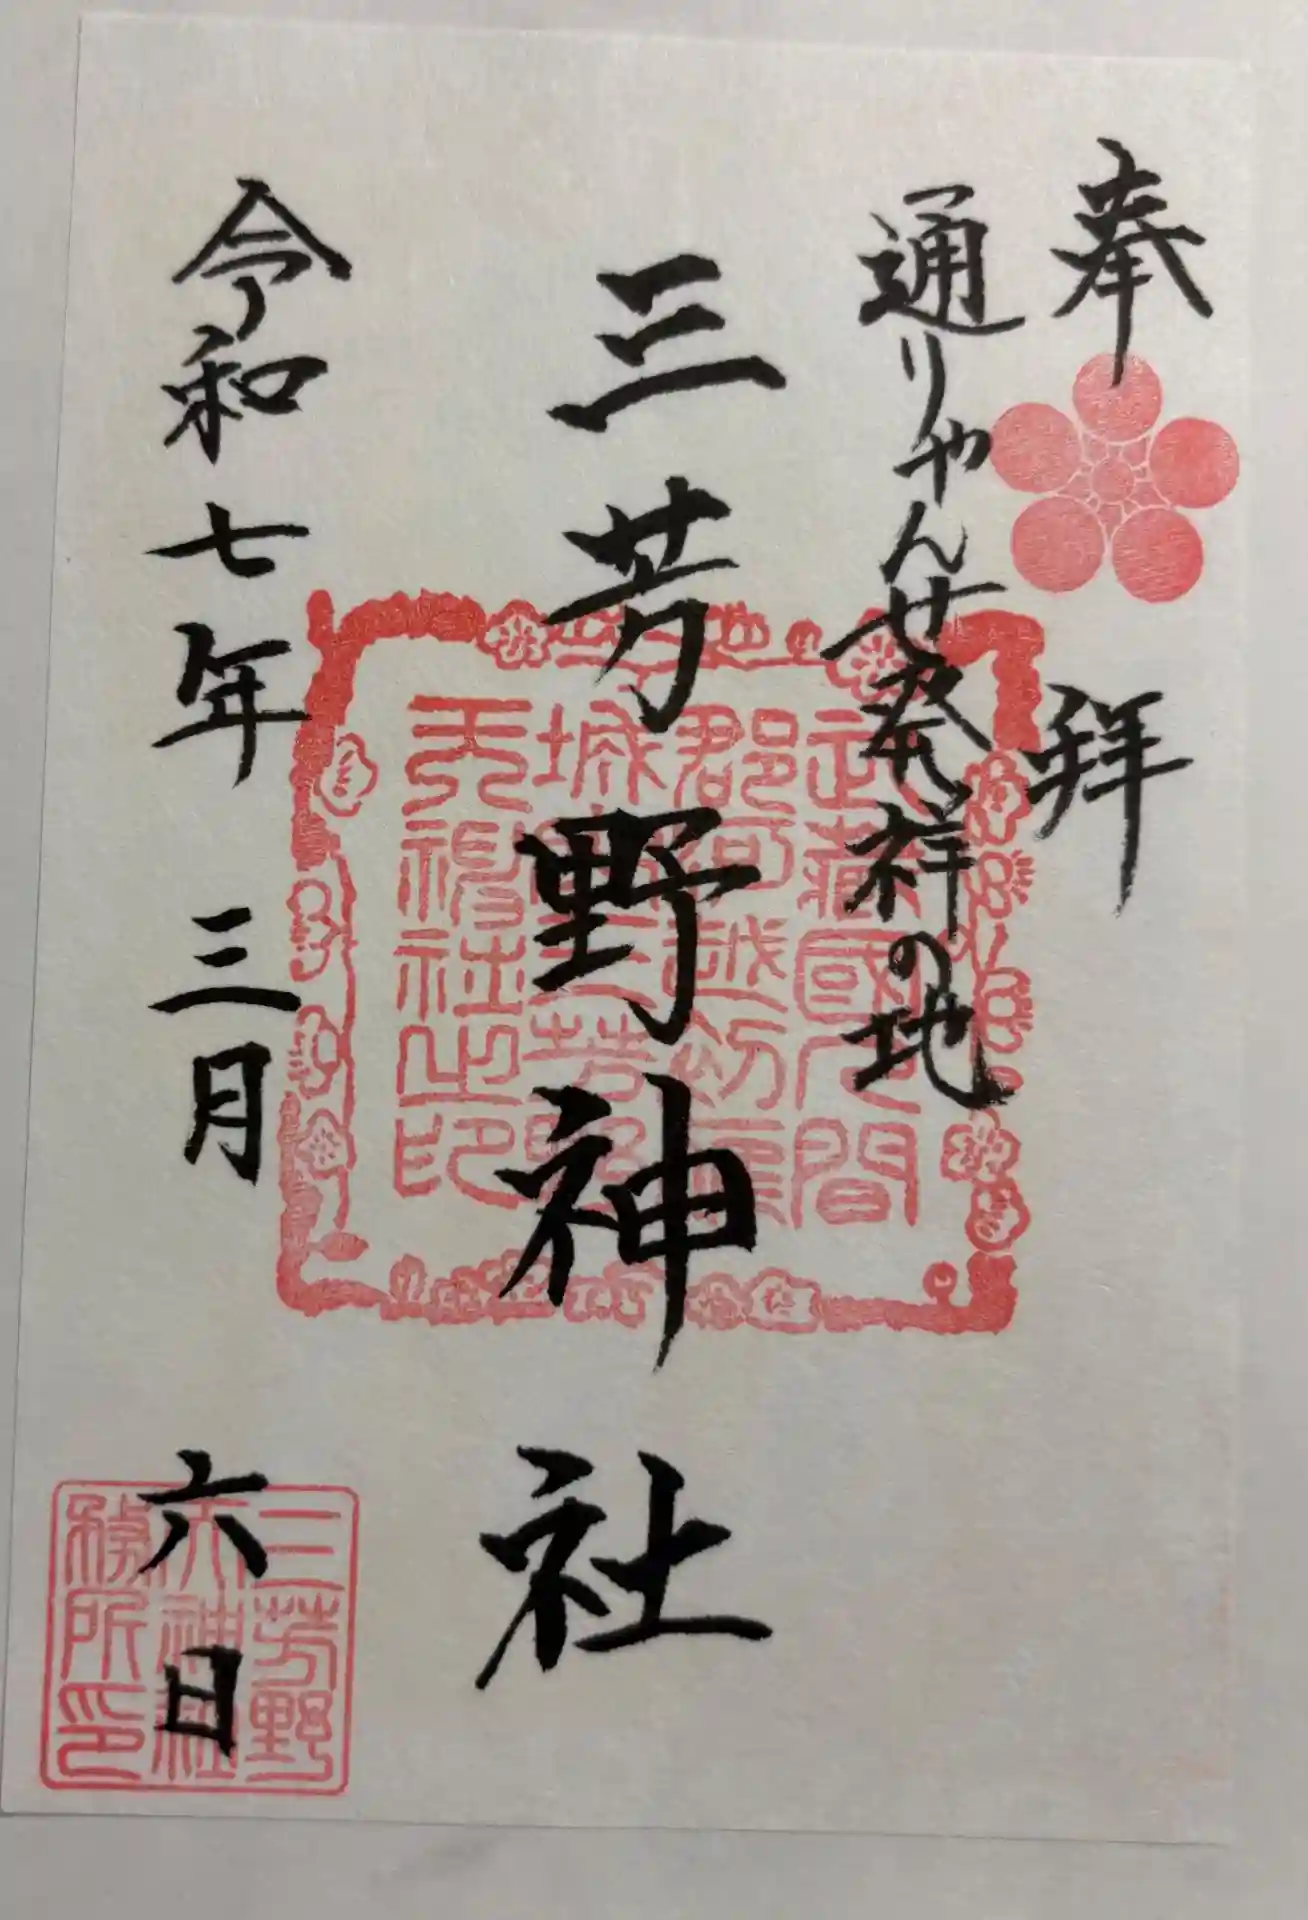 奉拝
通りゃんせ発祥の地
三芳野神社
令和七年三月六日
武蔵國入間
郡河越
城三芳野
天神社之印
三芳野
天神社
務所印